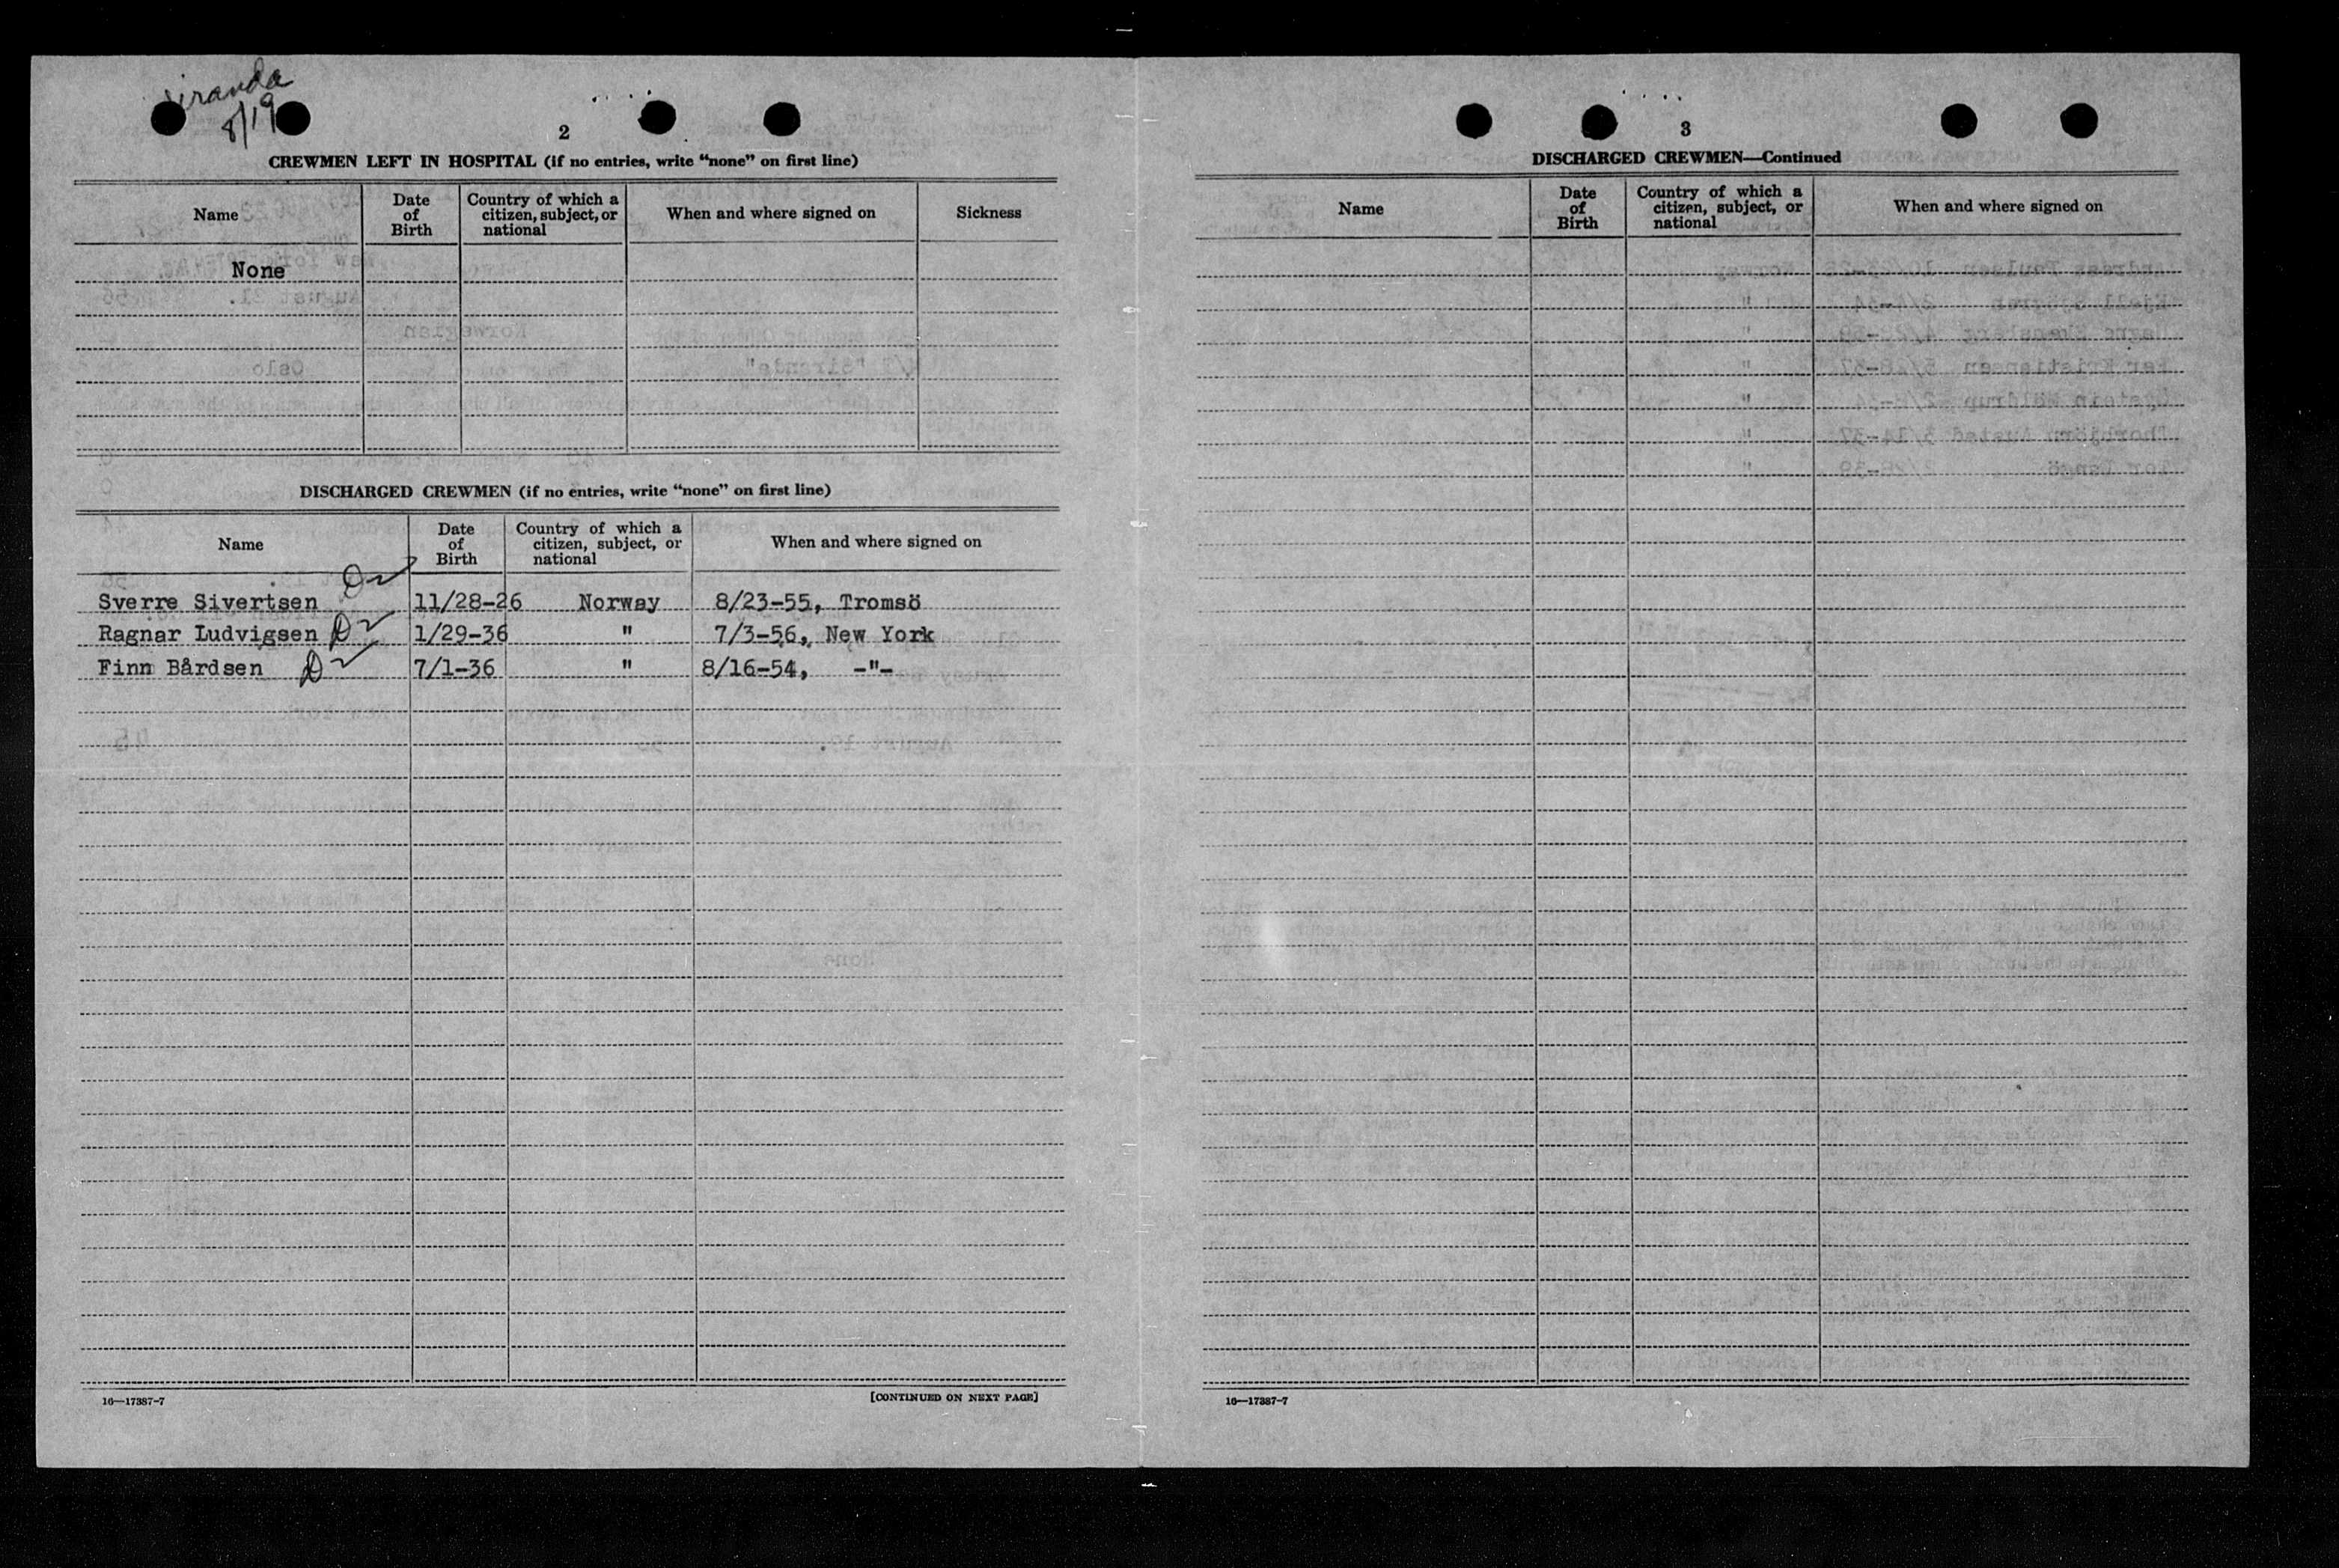 Siranda
8/19
2
CREWMEN LEFT IN HOSPITAL (if no entries, write “none” on first line)
Name
Date of Birth
Country of which a citizen, subject, or national
When and where signed on
Sickness
None
DISCHARGED CREWMEN (if no entries, write “none” on first line)
Name
Date of Birth
Country of which a citizen, subject, or national
When and where signed on
Sverre Sivertsen D 11/28-26 Norway 8/23-55, Tromsö
Ragnar Ludvigsen D 1/29-36 " 7/3-56, New York
Finn Bårdsen D 7/1-36 " 8/16-54, -"-
16—17387-7
[CONTINUED ON NEXT PAGE]
3
DISCHARGED CREWMEN—Continued
Name
Date of Birth
Country of which a citizen, subject, or national
When and where signed on
16—17387-7